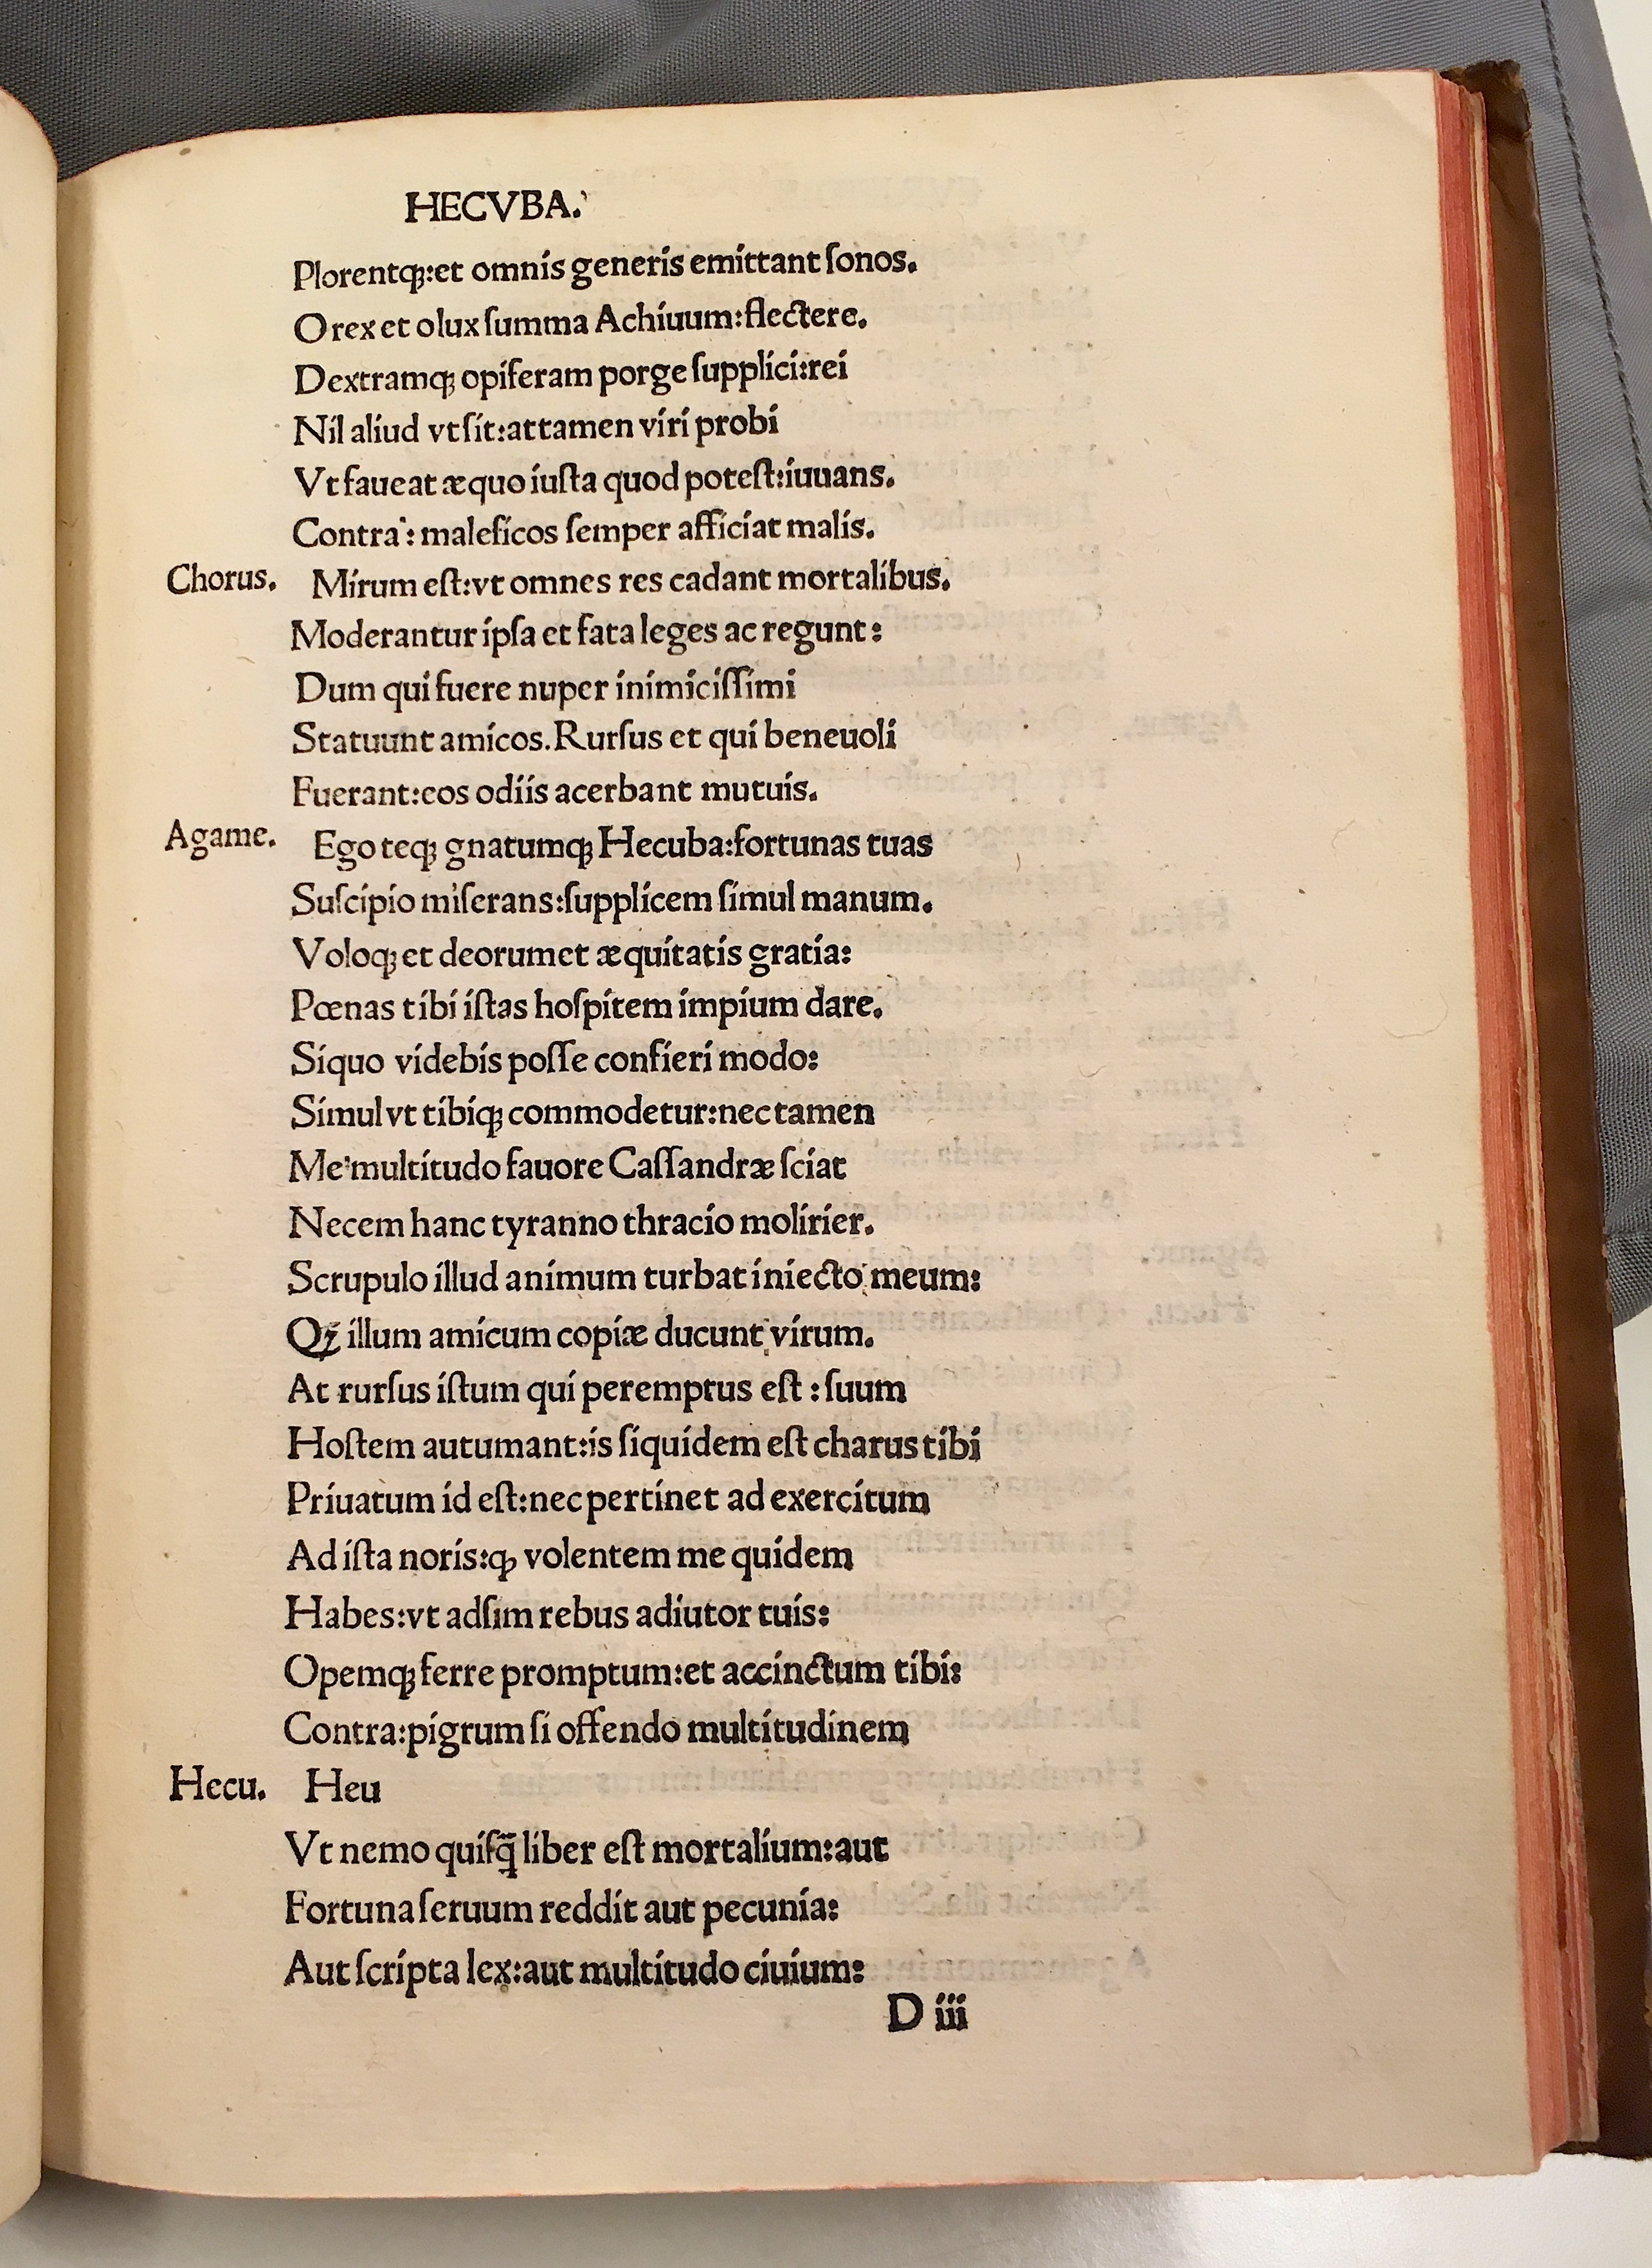 HECVBA.
Plorentqꝫ:et omnis generis emittant ſonos.
O rex et o lux ſumma Achiuum:flectere.
Dextramqꝫ opiferam porge ſupplici:rei
Nil aliud vt ſit:attamen viri probi
Vt faueat æquo iuſta quod poteſt:iuuans.
Contra: maleficos ſemper afficiat malis.
Chorus. Mirum eſt:vt omnes res cadant mortalibus.
Moderantur ipſa et fata leges ac regunt:
Dum qui fuere nuper inimiciſſimi
Statuunt amicos.Rurſus et qui beneuoli
Fuerant:eos odiis acerbant mutuis.
Agame. Ego teqꝫ gnatumqꝫ Hecuba:fortunas tuas
Suſcipio miſerans:ſupplicem ſimul manum.
Voloqꝫ et deorum et æquitatis gratia:
Pœnas tibi iſtas hoſpitem impium dare.
Siquo videbis poſſe confieri modo:
Simul vt tibiqꝫ commodetur:nec tamen
Me multitudo fauore Caſſandræ ſciat
Necem hanc tyranno thracio molirier.
Scrupulo illud animum turbat iniecto meum:
Qꝫ illum amicum copiæ ducunt virum.
At rurſus iſtum qui peremptus eſt : ſuum
Hoſtem autumant:is ſiquidem eſt charus tibi
Priuatum id eſt:nec pertinet ad exercitum
Ad iſta noris:ꝙ volentem me quidem
Habes:vt adſim rebus adiutor tuis:
Opemqꝫ ferre promptum:et accinctum tibi:
Contra:pigrum ſi offendo multitudinem
Hecu. Heu
Vt nemo quiſq̃ liber eſt mortalium:aut
Fortuna ſeruum reddit aut pecunia:
Aut ſcripta lex:aut multitudo ciuium:
D iii